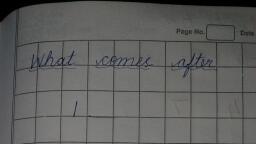 Page No. Date
What comes after
1